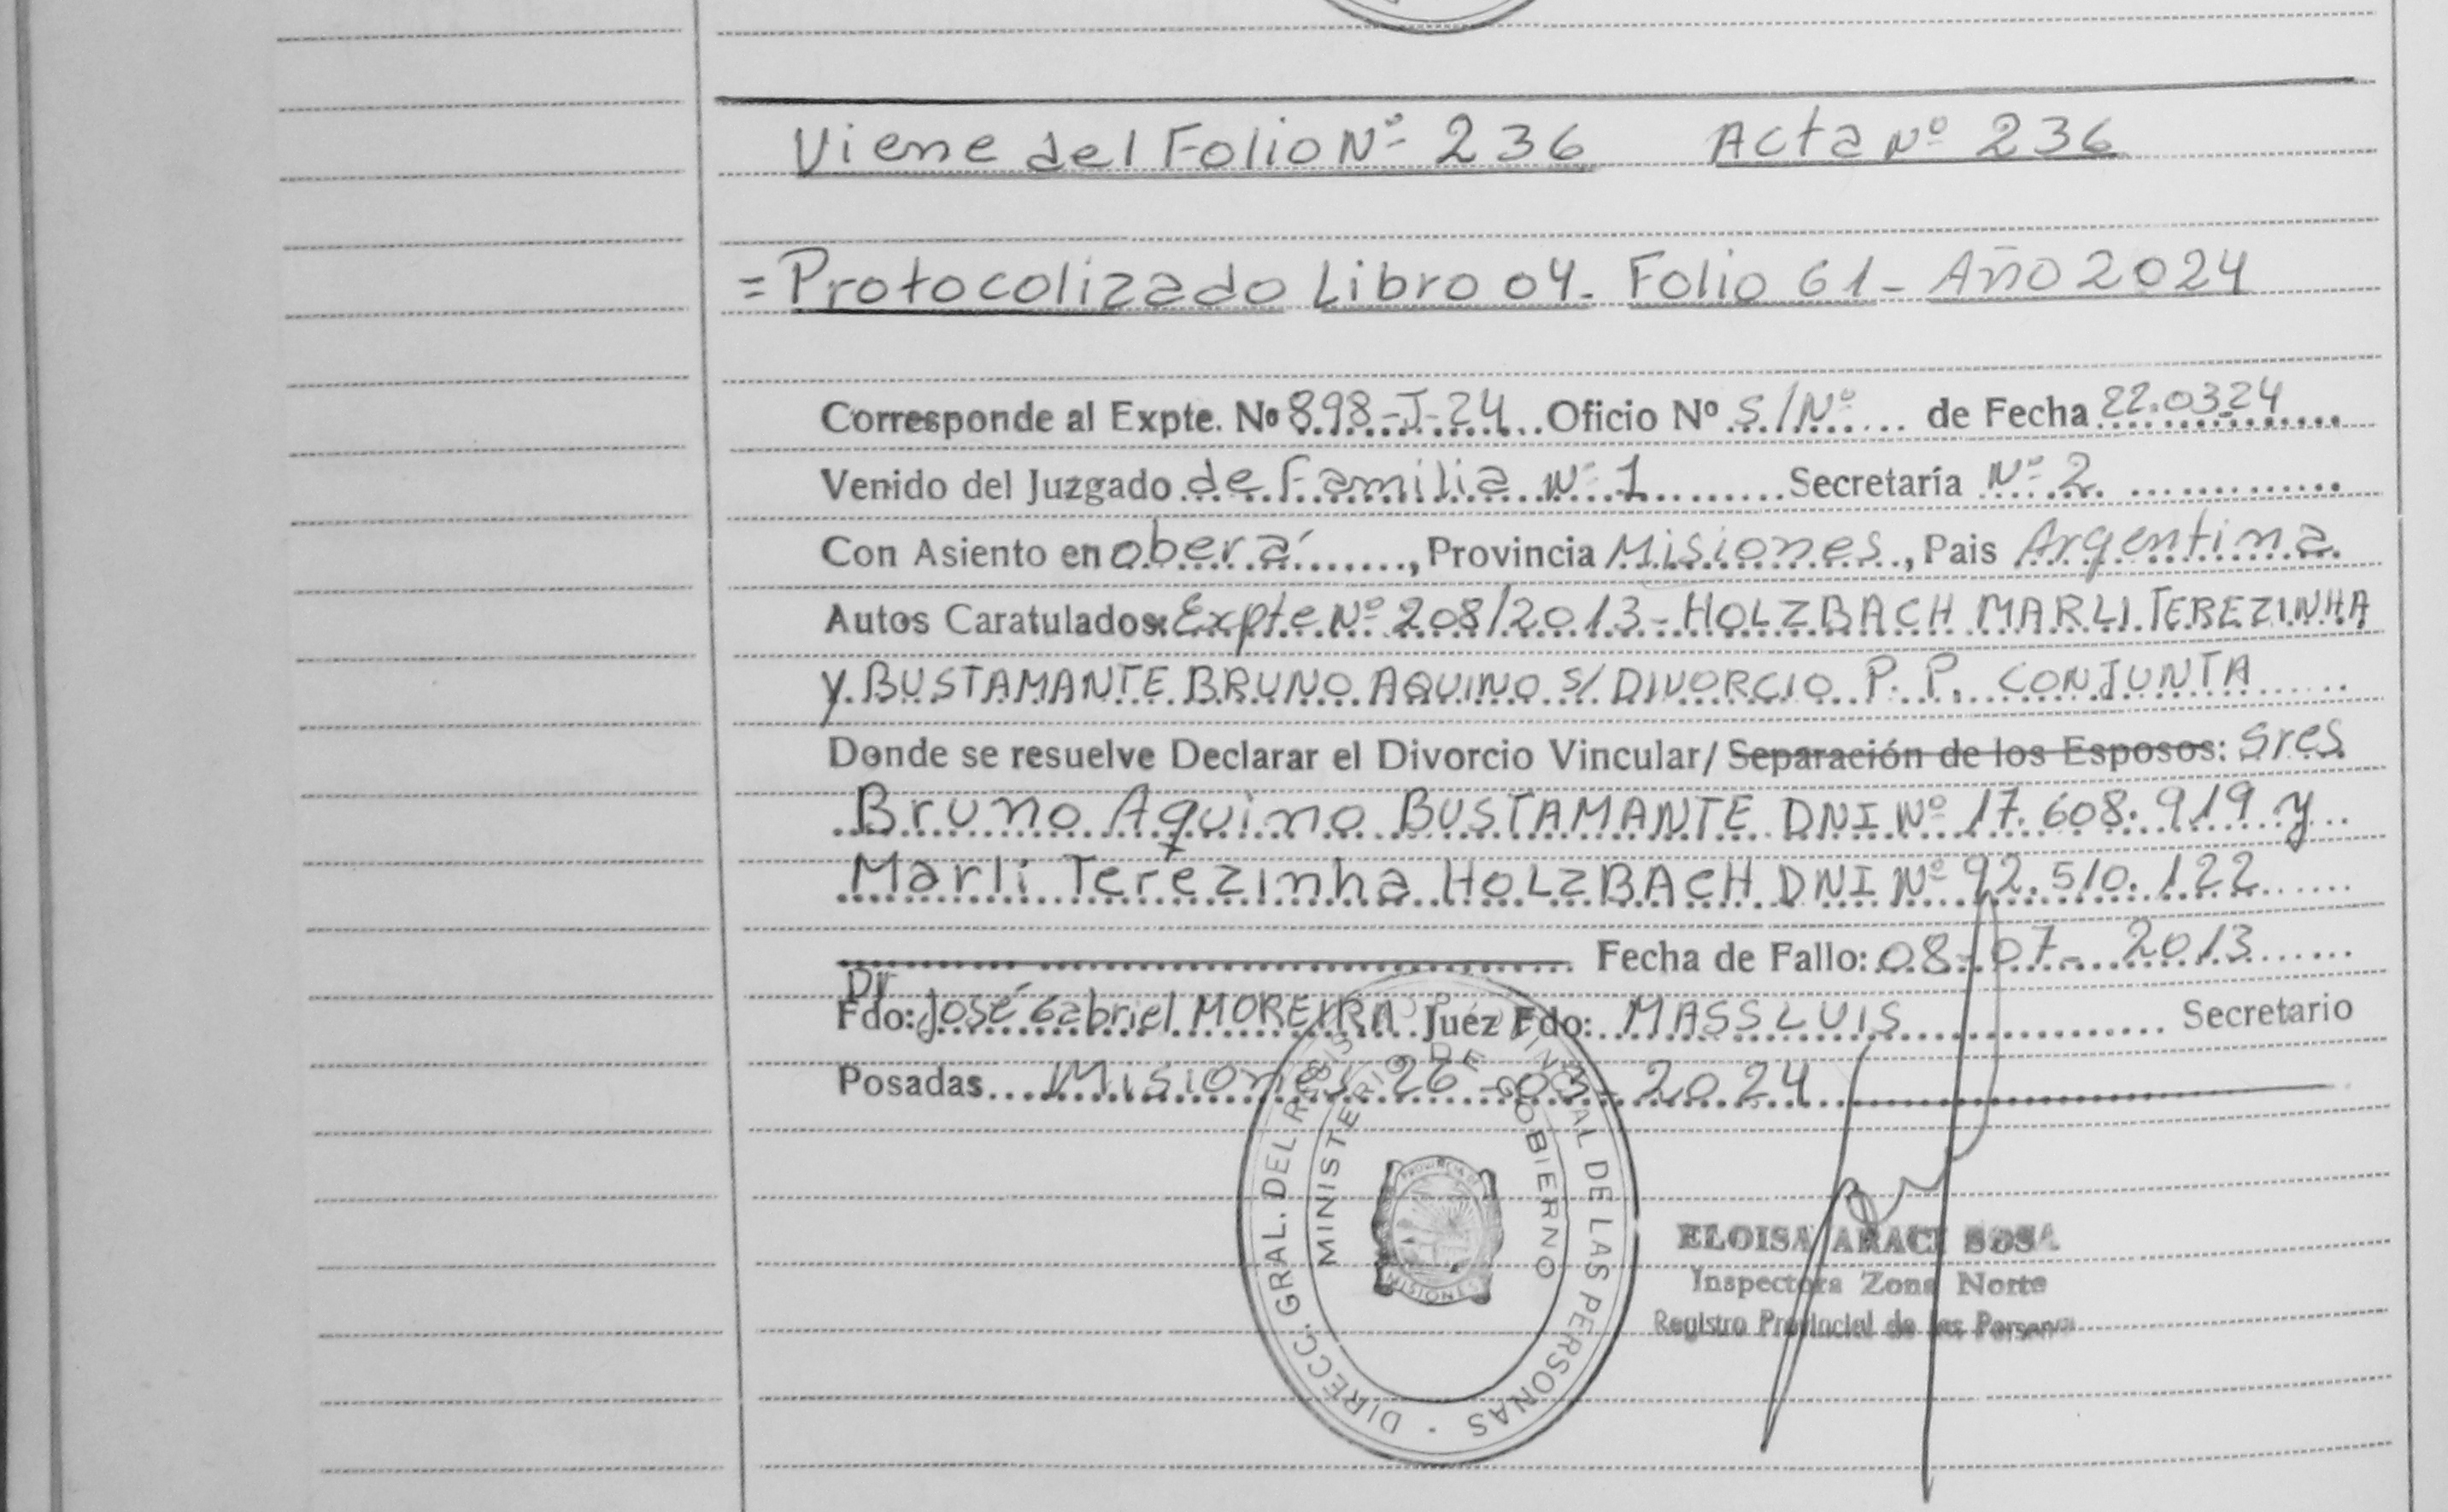 Viene del Folio Nº 236 Acta Nº 236
= Protocolizado Libro 04- Folio 61- Año 2024
Corresponde al Expte. Nº 898-J-24 Oficio Nº S/Nº de Fecha 22.03.24
Venido del Juzgado de Familia Nº 1 Secretaría Nº 2
Con Asiento en oberá, Provincia Misiones, Pais Argentina
Autos Caratulados: Expte Nº 208/2013 - HOLZBACH MARLI TEREZINHA
y BUSTAMANTE BRUNO AQUINO S/ DIVORCIO P. P. CONJUNTA
Donde se resuelve Declarar el Divorcio Vincular/ Separación de los Esposos: Sres
Bruno Aquino BUSTAMANTE DNI Nº 17.608.919 y
Marli Terezinha HOLZBACH DNI Nº 92.510.122
Fecha de Fallo: 08-07-2013
Dr
Fdo: José Gabriel MOREIRA Juez Fdo: MASS LUIS Secretario
Posadas Misiones 26-03-2024
DIRECC. GRAL. DEL REGISTRO PROVINCIAL DE LAS PERSONAS
MINISTERIO DE GOBIERNO
PROVINCIA DE
MISIONES
ELOISA ARACI SOSA
Inspectora Zona Norte
Registro Provincial de las Personas